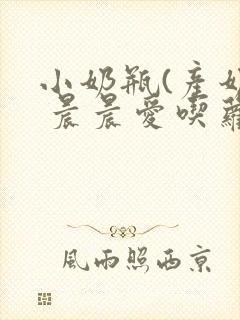 小奶瓶(產奶
晨晨愛喫蘿
風雨照西京